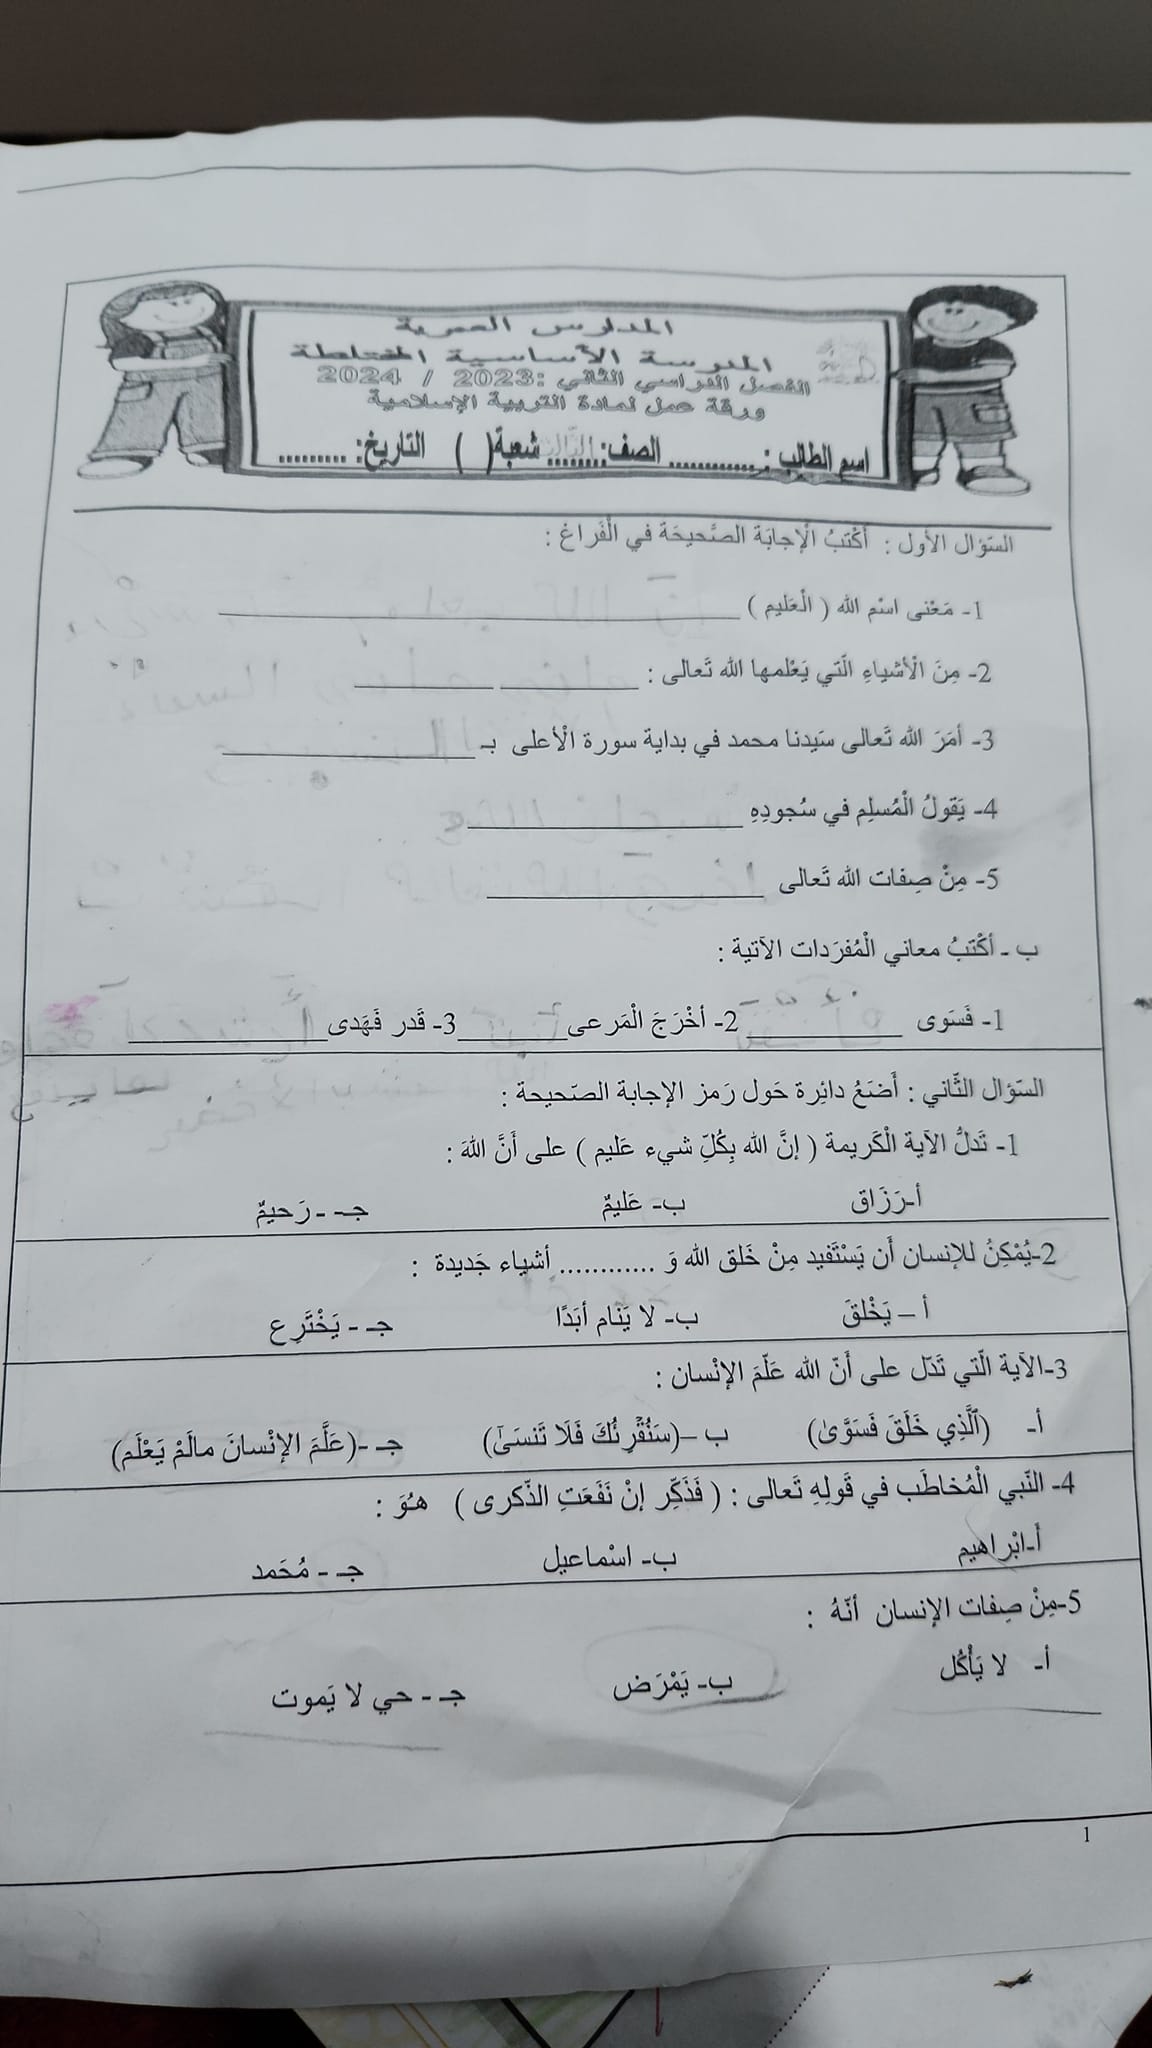 المدارس العمرية
المدرسة الأساسية المختلطة
الفصل الدراسي الثاني :2023 / 2024
ورقة عمل لمادة التربية الإسلامية
اسم الطالب : ............ الصف: الثالث شعبة( ) التاريخ: .........
السّؤال الأول : أكْتبُ الْإجابَة الصَّحيحَة في الْفَراغ :
1- مَعْنى اسْم الله ( الْعَليم )
2- مِنَ الْأشياءِ الّتي يَعْلمها الله تَعالى :
3- أمَرَ الله تَعالى سَيدنا محمد في بداية سورة الْأعلى بـ
4- يَقولُ الْمُسلِم في سُجودِهِ
5- مِنْ صِفات الله تَعالى
ب - أكْتبُ معاني الْمُفرَدات الآتية :
1- فَسَوى 2- أخْرَجَ الْمَرعى 3- قَدر فَهَدى
السّؤال الثّاني : أَضَعُ دائِرة حَول رَمز الإجابة الصّحيحة :
1- تَدلُّ الآية الْكَريمة ( إنَّ الله بِكُلِّ شيء عَليم ) على أَنَّ اللهَ :
أ-رَزَاق ب- عَليمٌ جـ - رَحيمٌ
2-يُمْكِنُ للإنسان أَن يَسْتَفيد مِنْ خَلق الله وَ ............ أشياء جَديدة :
أ – يَخْلقَ ب- لا يَنام أبَدًا جـ - يَخْتَرِع
3-الآية الّتي تَدّل على أَنّ الله عَلّمَ الإنْسان :
أ- (ٱلَّذِي خَلَقَ فَسَوَّىٰ) ب –(سَنُقْرِئُكَ فَلَا تَنسَىٰ) جـ -(عَلَّمَ الإنْسانَ مالَمْ يَعْلَم)
4- النّبي الْمُخاطَب في قَولِهِ تَعالى : ( فَذَكِّر إنْ نَفَعَتِ الذّكرى ) هوَُ :
أَ-ابْراهيم ب- اسْماعيل جـ - مُحَمد
5-مِنْ صِفات الإنسان أنّهُ :
أ- لا يَأْكُل ب- يَمْرَض جـ - حي لا يَموت
1